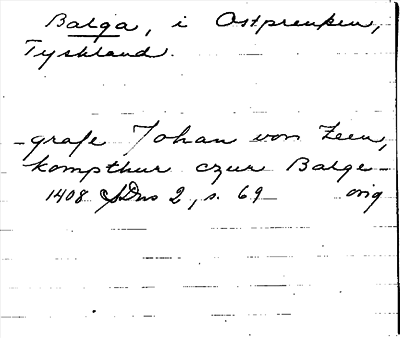 Balga, i Ostpreuſſen,
Tyskland.
-grafe Johan von Zeen,
kompthur czur Balge -
1408 SDns 2, s. 69 orig